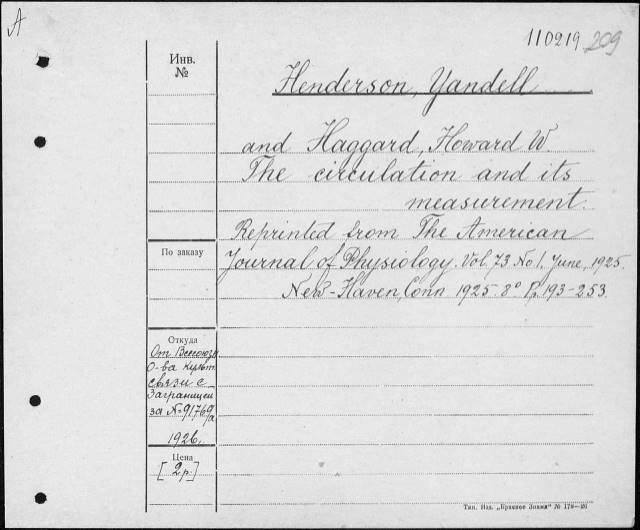 A
110219 209
Инв.
№
Henderson, Yandell
and Haggard, Howard W.
The circulation and its
measurement.
Reprinted from The American
По заказу
Journal of Physiology. Vol. 73 No 1. June, 1925.
New-Haven, Conn 1925. 8° Pp. 193-253.
Откуда
От Всесоюзн
О-ва культ
связи с
Заграницей
за № 91769/а
1926.
Цена
[2 р.]
Тип. Изд. „Красное Знамя" № 178—26